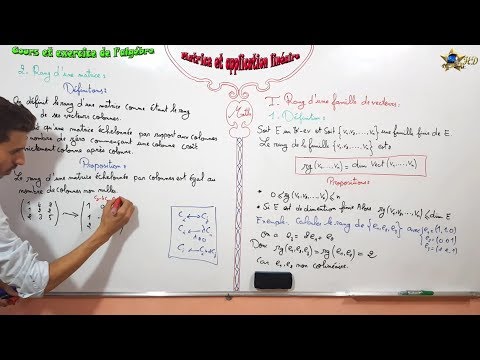 Cours et exercice de l'algèbre
Matrice et application linéaire
HD
Math
2. Rang d'une matrice:
Définitions:
On définit le rang d'une matrice comme étant le rang
de ses vecteurs colonnes.
qu'une matrice échelonnée par rapport aux colonnes
nombre de zéro commençant une colonne croît
strictement colonne après colonne.
Proposition:
Le rang d'une matrice échelonnée par colonnes est égal au
nombre de colonnes non nulles.
I. Rang d'une famille de vecteurs.
1. Définition:
Soit E un K-ev et Soit {v₁, v₂, ..., vₙ} une famille finie de E.
Le rang de la famille {v₁, v₂, ..., vₙ} est:
rg(v₁, v₂, ..., vₙ) = dim Vect(v₁, ..., vₙ)
Propositions:
• 0 ≤ rg(v₁, v₂, ..., vₙ) ≤ n
• Si E est de dimention finie Alors rg(v₁, ..., vₙ) ≤ dim E
Exemple. Calculer le rang de {e₁, e₂, e₃} avec
Donc rg(e₁, e₂, e₃) = rg(e₁, e₂) = 2
Car e₁, e₂ non colinéaires.